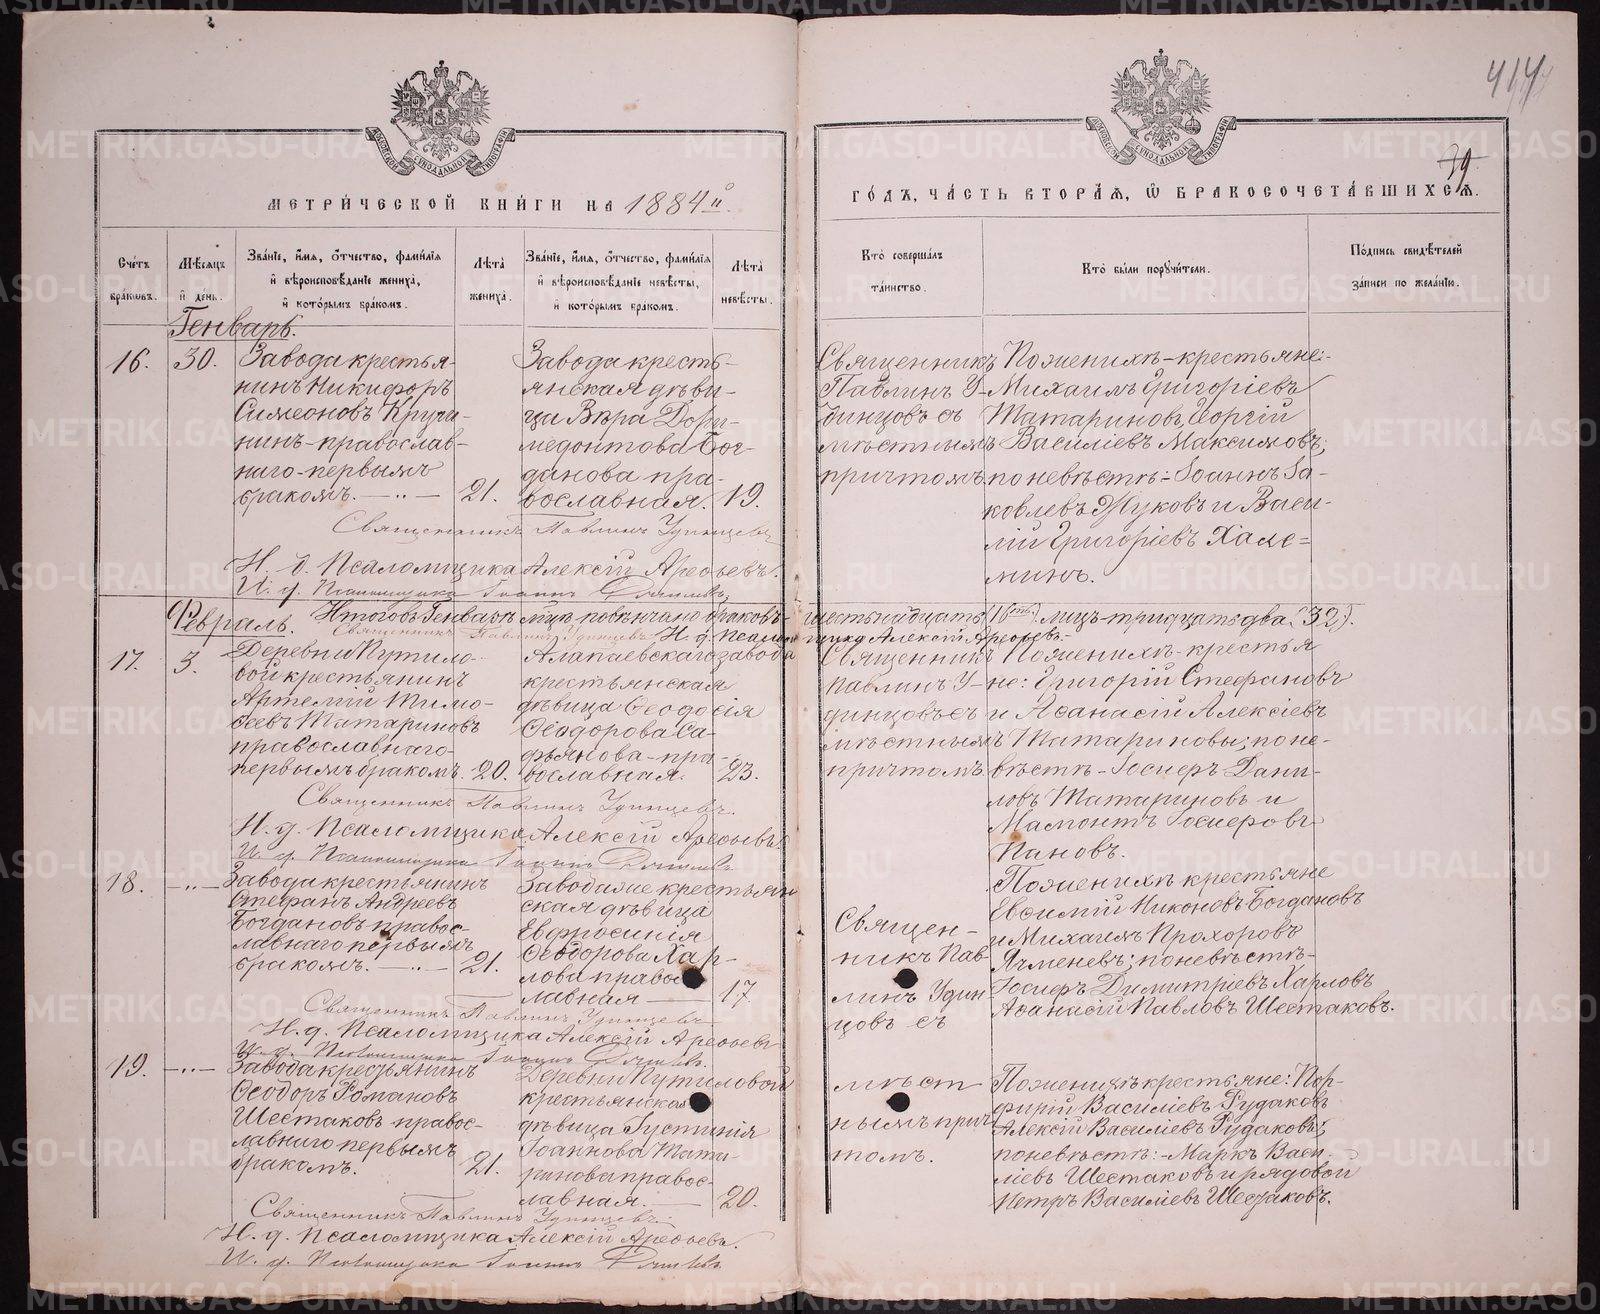 414
39
МЕТРИ́ЧЕСКОЙ КНИ́ГИ НА 1884й.
ГО́ДЪ, ЧА́СТЬ ВТОРА́Я, Ѽ БРАКОСОЧЕТА́ВШИХСЯ.
Сче́тъ бра́кѡвъ.
Мѣ́сяцъ и҆ де́нь.
Зва́нїе, и҆́мѧ, ѻ҆́тчество, фами́лїѧ
и҆ вѣроисповѣ́данїе жениха̀,
и҆ кото́рымъ бра́комъ.
Лѣ́та жениха̀.
Зва́нїе, и҆́мѧ, ѻ҆́тчество, фами́лїѧ
и҆ вѣроисповѣ́данїе невѣ́сты,
и҆ кото́рымъ бра́комъ.
Лѣ́та невѣ́сты.
Кто̀ соверша́лъ
та́инство.
Кто̀ бы́ли порꙋчи́тели.
По́дпись свидѣ́телей
за́писи по жела́нїю.
Генварь.
16.
30.
Завода крестья-
нинъ Никифоръ
Симеоновъ Кручи-
нинъ-православ-
наго-первымъ
бракомъ. — „ —
21.
Завода кресть-
янская дѣви-
ца Вѣра Дори-
медонтова Бог-
данова пра-
вославная.
19.
Священникъ
Павлинъ У-
динцовъ съ
мѣстнымъ
причтомъ
По женихѣ-крестьяне:
Михаилъ Григоріевъ
Татариновъ, Георгій
Василіевъ Максимовъ;
по невѣстѣ:-Іоаннъ Іа-
ковлевъ Жуковъ и Васи-
лій Григоріевъ Хале-
минъ.
Священникъ Павлинъ Удинцевъ
Н. д. Псаломщика Алексій Арефьевъ.
И. д. Псаломщика Іоаннъ
Итого въ Генварѣ м-цѣ повѣнчано браковъ-
шестьнадцать (16ть.) лицъ-тридцать два (32).
Священникъ Павлинъ Удинцевъ Н. д. Псалом-
щика Алексій Арефьевъ.
Февраль.
17.
3.
Деревни Путило-
вой крестьянинъ
Артемій Тимо-
феевъ Татариновъ
православнаго-
первымъ бракомъ.
20.
Алапаевскаго завода
крестьянская
дѣвица Ѳеодосія
Ѳеодорова Са-
фьянова-пра-
вославная.
23.
Священникъ
Павлинъ У-
динцовъ съ
мѣстнымъ
причтомъ
По женихѣ-крестья
не: Григорій Стефановъ
и Аѳанасій Алексіевъ
Татариновы; по не-
вѣстѣ-Іосифъ Дани-
ловъ Татариновъ и
Мамонтъ Іосифовъ
Пановъ.
Священникъ Павлинъ Удинцевъ.
Н. д. Псаломщика Алексій Арефьевъ
И. д. Псаломщика Іоаннъ
18.
— „ —
Завода крестьянинъ
Стефанъ Андреевъ
Богдановъ правос-
лавнаго первымъ
бракомъ. — „ —
21.
Завода же крестьян
ская дѣвица
Евфросинія
Ѳеодорова Хар-
лова правос
лавная —
17.
Священ-
никъ Пав
линъ Удин-
цовъ съ
По женихѣ крестьяне
Евсимій Никоновъ Богдановъ
и Михаилъ Прохоровъ
Ячменевъ; по невѣстѣ-
Іосифъ Димитріевъ Харловъ
Аѳанасій Павловъ Шестаковъ.
Священникъ Павлинъ Удинцевъ
Н. д. Псаломщика Алексій Арефьевъ
И. д. Псаломщика Іоаннъ
19.
— „ —
Завода крестьянинъ
Ѳеодоръ Романовъ
Шестаковъ правос-
лавнаго первымъ
бракомъ.
21.
Деревни Путиловой
крестьянская
дѣвица Іустинія
Іоаннова Тата-
ринова правос-
лавная. —
20.
мѣст
нымъ прич
томъ.
По женихѣ крестьяне: Пор-
фирій Василіевъ Рудаковъ
Алексій Василіевъ Рудаковъ;
по невѣстѣ:-Маркъ Васи-
ліевъ Шестаковъ и рядовой
Петръ Василіевъ Шестаковъ.
Священникъ Павлинъ Удинцевъ.
Н. д. Псаломщика Алексій Арефьевъ.
И. д. Псаломщика Іоаннъ
METRIKI.GASO-URAL.RU